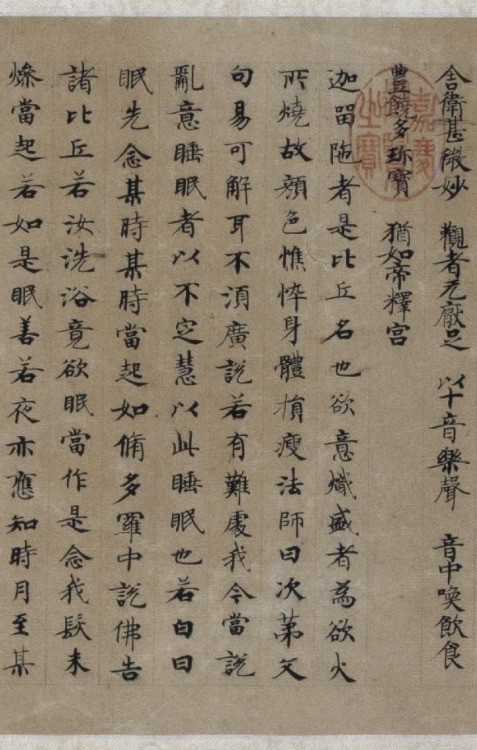 舍衛甚微妙 觀者无厭足 以十音樂聲 音中喚飲食
豊饒多珎寶 猶如帝釋宫
迦留陁者是比丘名也欲意熾盛者為欲火
所燒故顔色憔悴身體損瘦法師曰次第文
句易可解耳不湏廣說若有難處我今當說
亂意睡眠者以不定慧以此睡眠也若白曰
眠先念某時某時當起如脩多羅中說佛告
諸比丘若汝洗浴竟欲眠當作是念我髮未
燥當起若如是眠善若夜亦應知時月至某